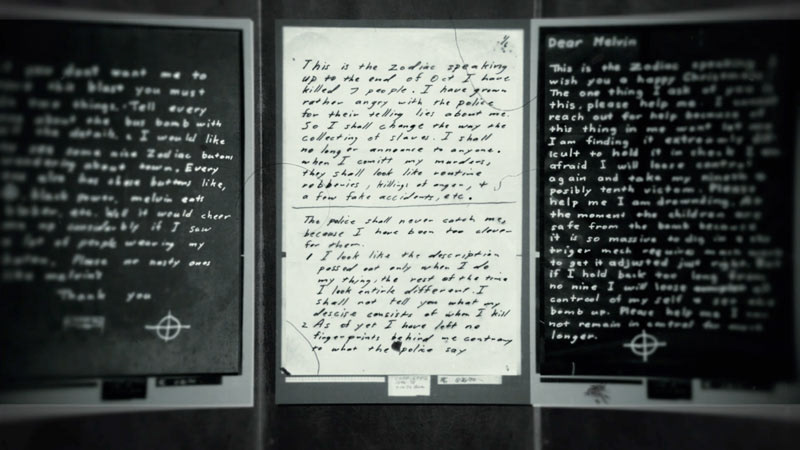 you dont want me to
blast you must
things. Tell every
about the bus bomb with
details. I would like
nine Zodiac butons
about town. Every
these buttons like,
melvin eats
etc. Well it would cheer
if I saw
lot of people wearing my
Please no nasty ones
Thank you
This is the Zodiac speaking
up to the end of Oct I have
killed 7 people. I have grown
rather angry with the police
for their telling lies about me.
So I shall change the way the
collecting of slaves. I shall
no longer announce to anyone.
when I comitt my murders,
they shall look like routine
robberies, killings of anger, +
a few fake accidents, etc.
The police shall never catch me,
because I have been too clever
for them.
1 I look like the description
passed out only when I do
my thing, the rest of the time
I look entirle different. I
shall not tell you what my
descise consists of when I kill
2 As of yet I have left no
fingerprints behind me contrary
to what the police say
Dear Melvin
This is the Zodiac speaking I
wish you a happy Christmass
The one thing I ask of you is
this, please help me. I
reach out for help because of
this thing in me wont let me
I am finding it extreamly
icult to hold it in check I am
afraid I will loose control
again and take my nineth +
posibly tenth victom. Please
help me I am drownding. At
the moment the children are
safe from the bomb because
it is so massive to dig in + the
triger mech requires much work
to get it adjusted just right. But
if I hold back too long from
no nine I will loose
controol of my self + set the
bomb up. Please help me I can
not remain in control for much
longer.